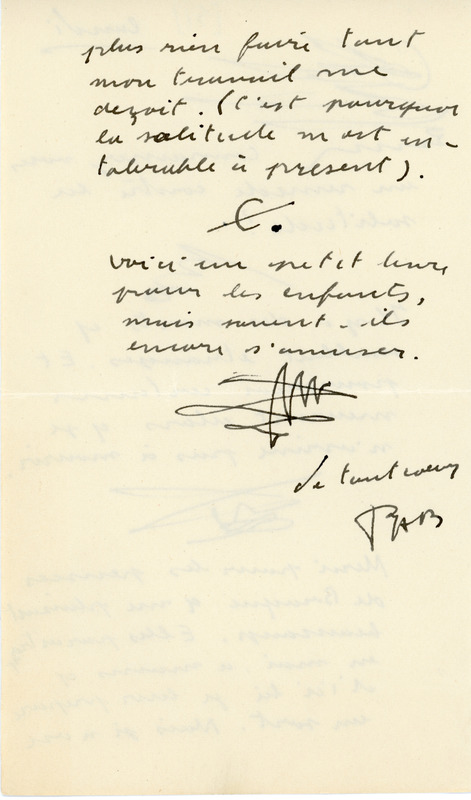 plus rien faire tant
mon travail me
deçoit. (C'est pourquoi
la solitude m'est in-
tolerable à présent).
C.
Voici un petit livre
pour les enfants,
mais savent-ils
encore s'amuser.
de tout coeur